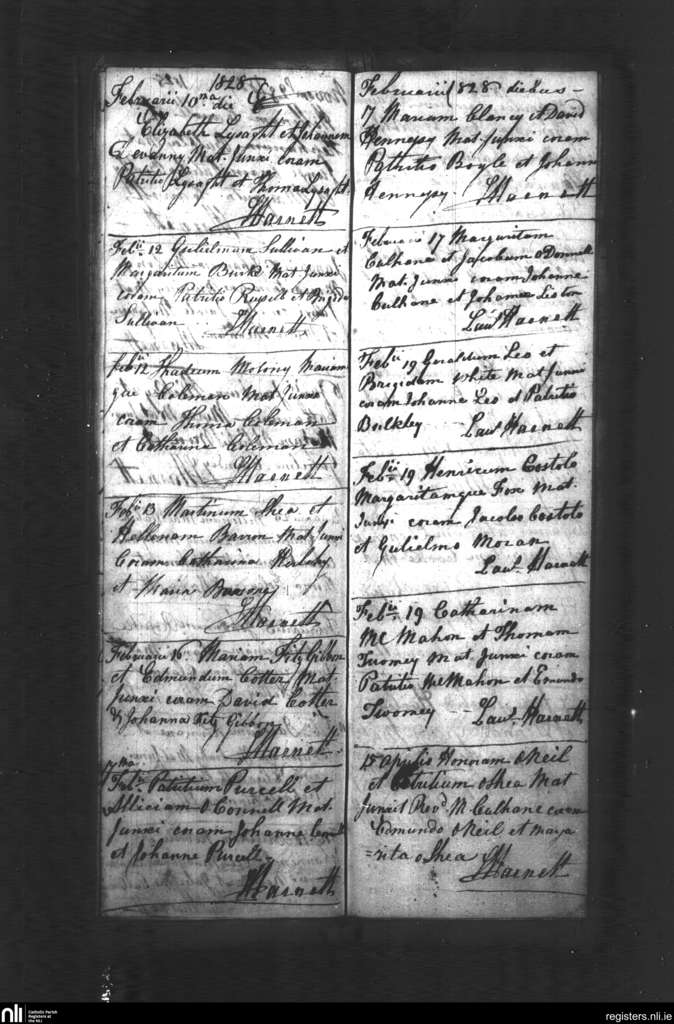 1828
Februarii 10na die
Elizabeth Lysaght et Johannem
Devanny Mat. Junxi coram
Patritio Lysaght et Thoma Lysaght
LHarnett
Feb.ii 12 Gulielmum Sullivan et
Margaritam Burke Mat Junxi
coram Patritio Russell et Brigida
Sullivan
LHarnett
Feb.ii 12 Thadeum Molony Mariam
que Coleman Mat Junxi
coram Thoma Coleman
et Catharina Coleman
LHarnett
Feb.ii 13 Martinum Shea et
Hellenam Barron Mat. Junxi
Coram Catharina
et Maria
LHarnett
Februarii 16 Mariam FitzGibbon
et Edmundum Cotter Mat.
Junxi coram David Cotter
& Johanna Fitz Gibbon
LHarnett
17ma
Feb.ii Patritium Purcell et
Alliciam OConnell Mat.
Junxi coram Johanne
et Johanne Purcell
LHarnett
Februarii 1828 diebus
17 Mariam Clancy et David
Hennessy Mat. Junxi coram
Patritio Boyle et Johanne
Hennessy LHarnett
Februarii 17 Margaritam
Culhane et Jacobum ODonnell
Mat. Junxi coram Johanne
Culhane et Johanna Liston
Lau.t Harnett
Feb.ii 19 Geraldum Leo et
Brigidam White Mat Junxi
coram Johanne Leo et Patritio
Bulkley Lau.t Harnett
Feb.ii 19 Henricum Costolo
Margaritamque Fox Mat.
Junxi coram Jacobo Costolo
et Gulielmo Moran
Lau.t Harnett
Feb.ii 19 Catharinam
McMahon et Thomam
Twomey Mat Junxi coram
Patritio McMahon et Emundo
Twomey Lau.t Harnett
15 Aprilis Honoram ONeil
et Patritium OShea Mat
Junxit Rev.d M Culhane coram
Edmundo ONeil et Marga
=rita OShea LHarnett
nli
Catholic Parish
Registers at
the NLI
registers.nli.ie